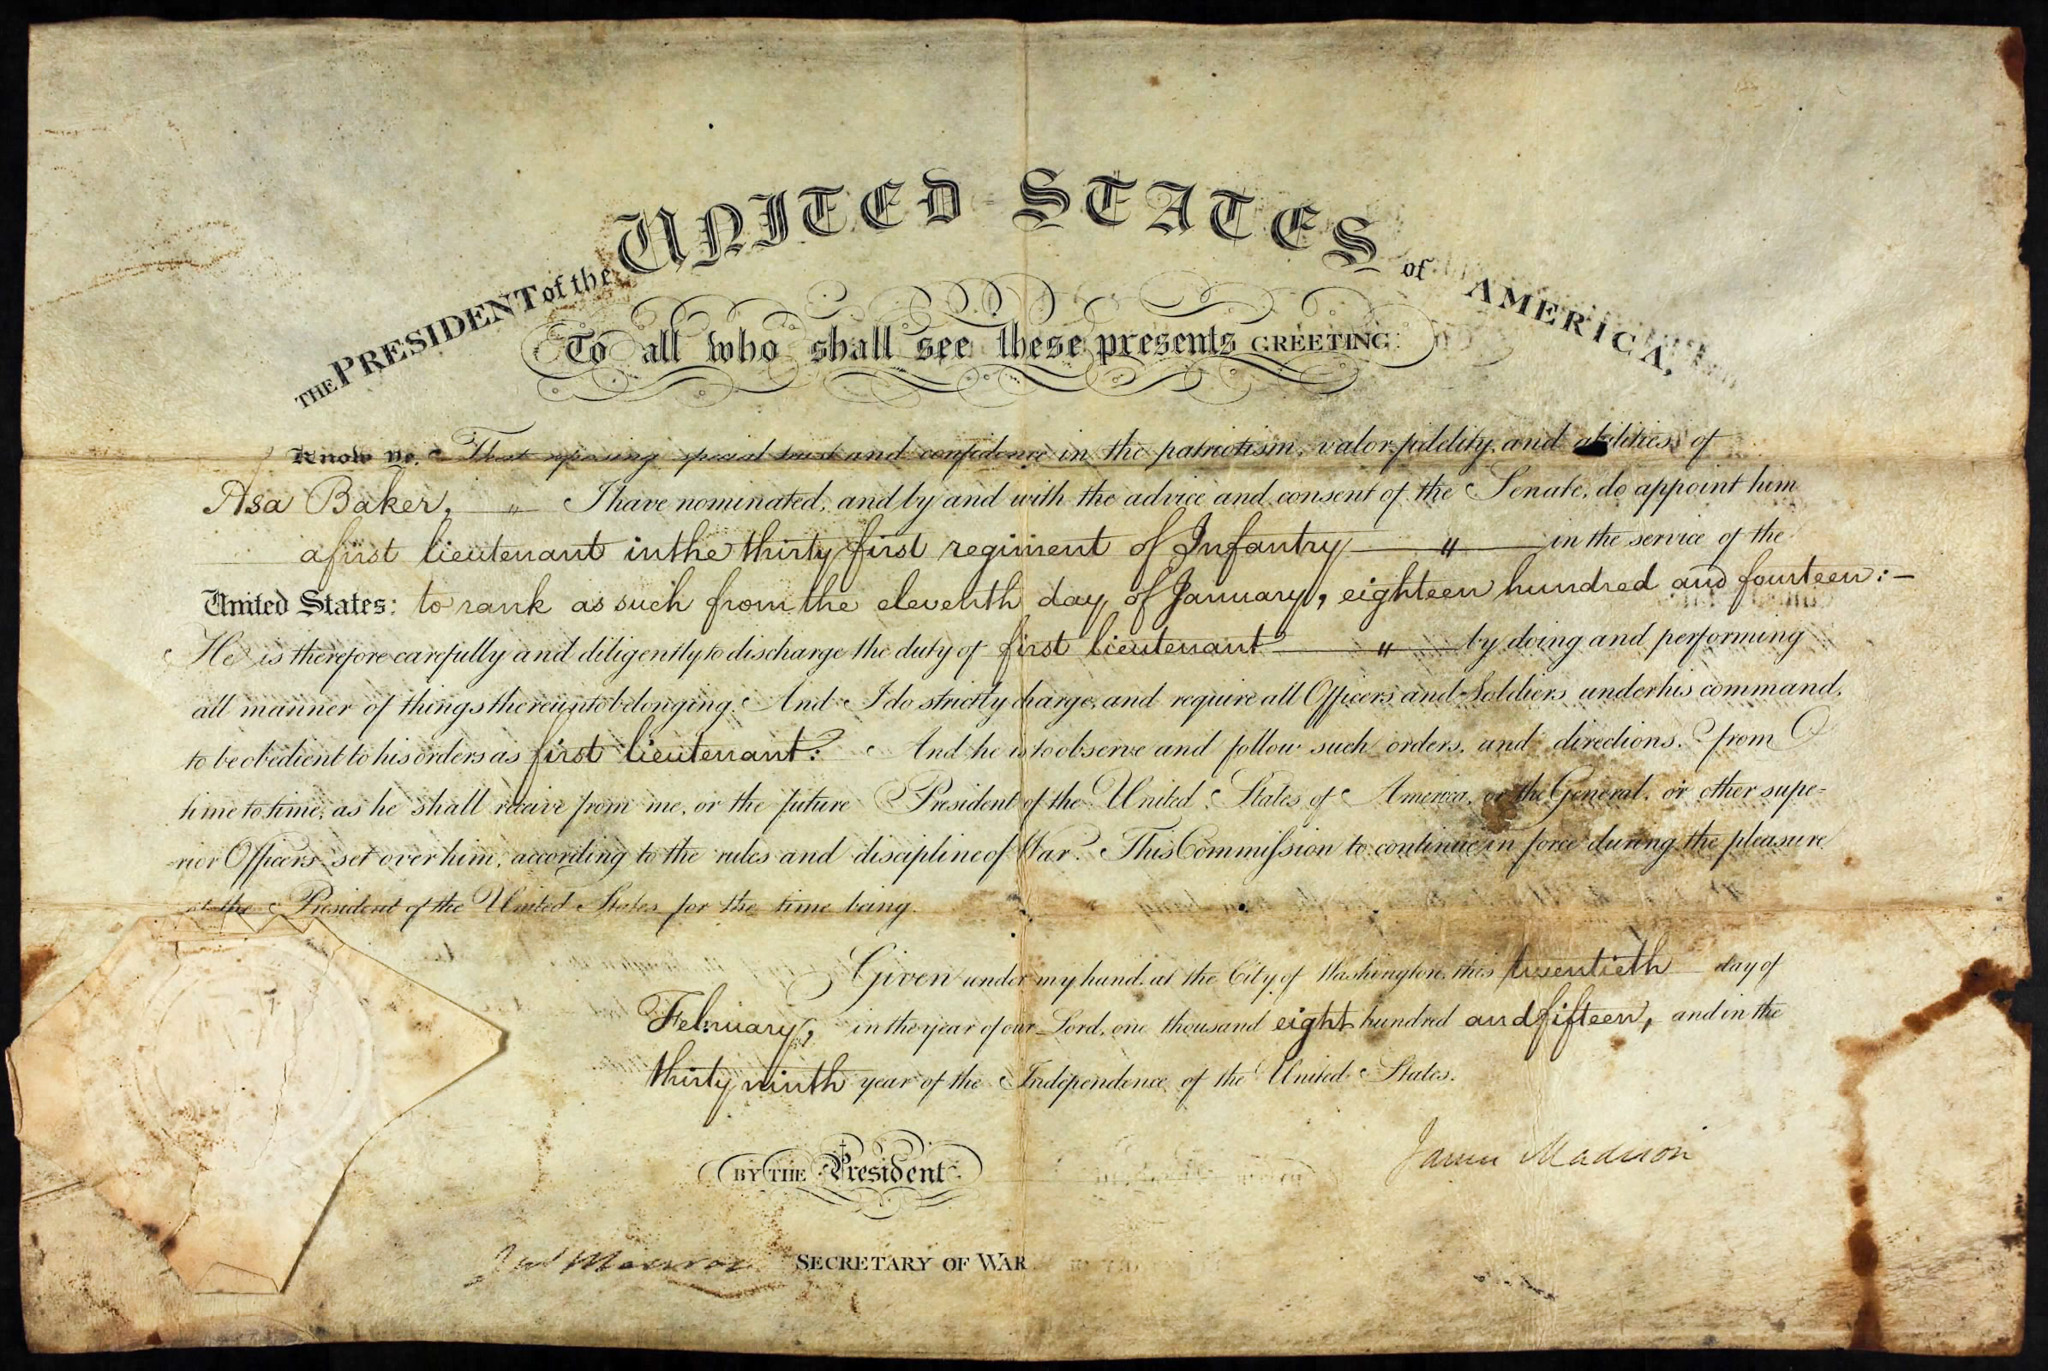 THE PRESIDENT of the UNITED STATES of AMERICA,
To all who shall see these presents GREETING:
Know Ye, That reposing special trust and confidence in the patriotism, valor, fidelity, and abilities of
Asa Baker, „ I have nominated, and by and with the advice and consent of the Senate, do appoint him
a first lieutenant in the thirty first regiment of Infantry „ in the service of the
United States: to rank as such from the eleventh day of January, eighteen hundred and fourteen:—
He is therefore carefully and diligently to discharge the duty of first lieutenant „ by doing and performing
all manner of things thereunto belonging. And I do strictly charge, and require all Officers and Soldiers under his command,
to be obedient to his orders as first lieutenant: And he is to observe and follow such orders, and directions, from
time to time, as he shall receive from me, or the future President of the United States of America, or the General, or other supe=
rior Officers set over him, according to the rules and discipline of War. This Commission to continue in force during the pleasure
of the President of the United States for the time being.
Given under my hand, at the City of Washington, this twentieth day of
February, in the year of our Lord, one thousand eight hundred and fifteen, and in the
thirty ninth year of the Independence of the United States.
James Madison
BY THE President
Jas Monroe SECRETARY OF WAR